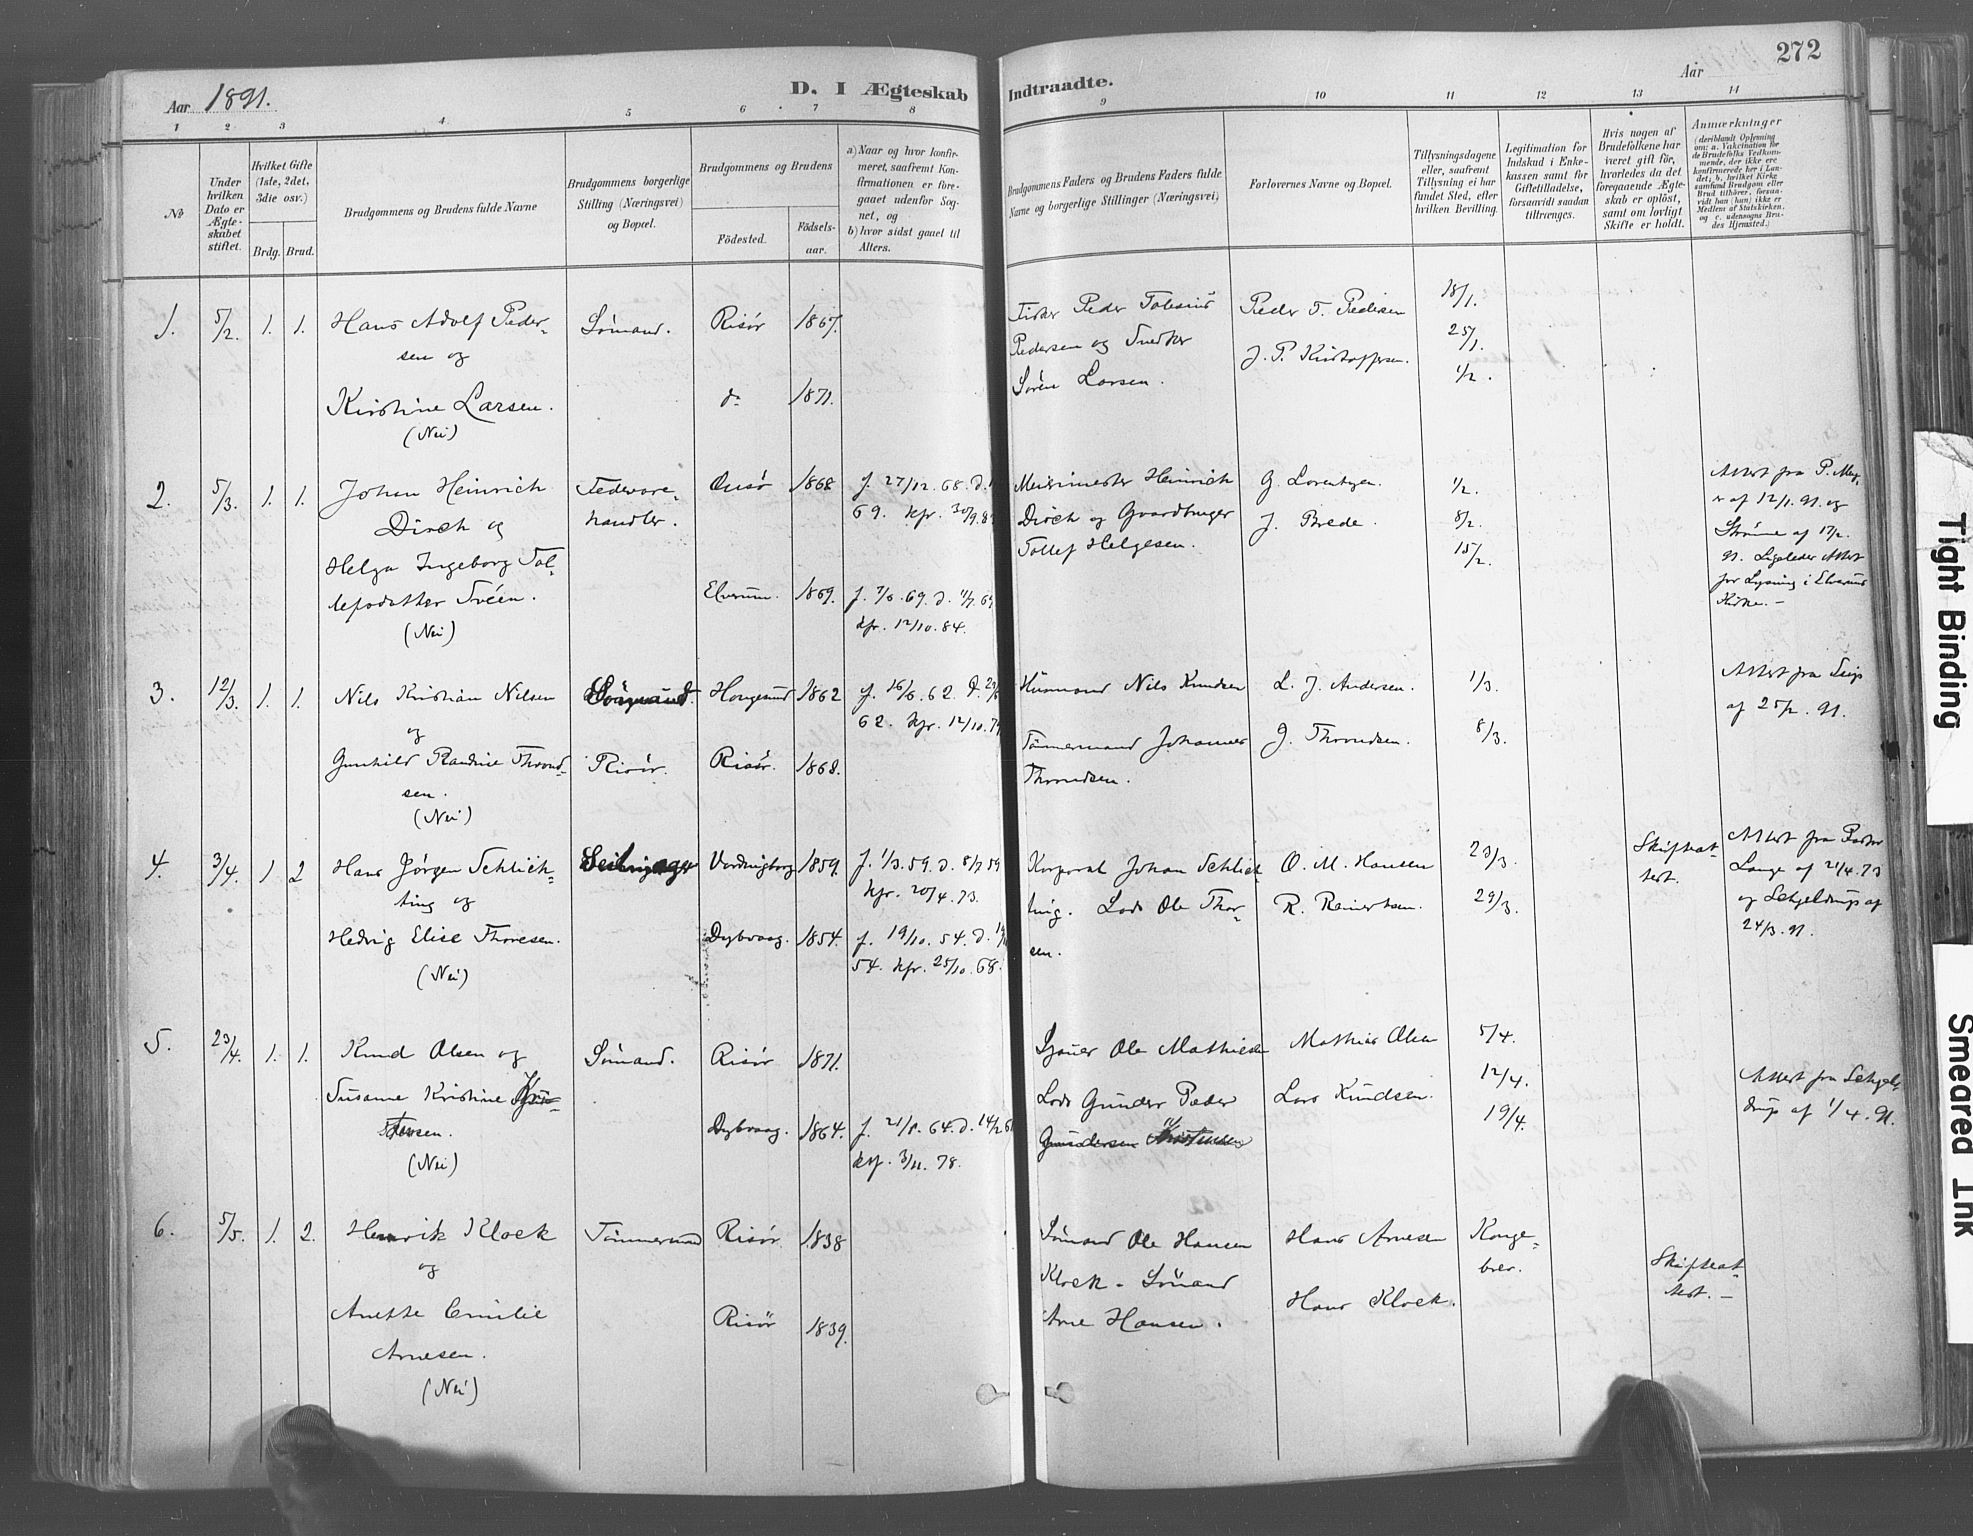 272
Aar 1891.
D. I Ægteskab Indtraadte.
Aar
1 2 3 4 5 6 7 8 9 10 11 12 13 14
No
Under hvilken Dato er Ægteskabet stiftet.
Hvilket Gifte (1ste, 2det, 3die osv.)
Brdg. Brud.
Brudgommens og Brudens fulde Navne
Brudgommens borgerlige Stilling (Næringsvei) og Bopæl.
Brudgommens og Brudens
Födested. Födselsaar.
a) Naar og hvor konfirmeret, saafremt Konfirmationen er foregaaet udenfor Sognet, og
b) hvor sidst gaaet til Alters.
Brudgommens Faders og Brudens Faders fulde Navne og borgerlige Stillinger (Næringsvei)
Forlovernes Navne og Bopæl.
Tillysningsdagene eller, saafremt Tillysning ei har fundet Sted, efter hvilken Bevilling.
Legitimation for Indskud i Enkekassen samt for Giftetilladelse, forsaavidt saadan tiltrænges.
Hvis nogen af Brudefolkene har været gift før, hvorledes da det foregaaende Ægteskab er oplöst, samt om lovligt Skifte er holdt.
Anmærkninger (deriblandt Oplysning om: a. Vakcination for de Brudefolks Vedkommende, der ikke ere konfirmerede her i Landet; b. hvilket Kirkesamfund Brudgom eller Brud tilhörer, forsaavidt han (hun) ikke er Medlem af Statskirken, og c. udensogns Brudes Hjemsted.)
1. 5/2. 1. 1. Hans Adolf Peder-
sen og
Kirstine Larsen.
(Nei)
Sömand.
Risör 1867.
do 1871.
Fisker Peder Tobias
Pedersen og Snedker
Sören Larsen.
Peder T. Pedersen
J. P. Kristoffersen.
18/1.
25/1.
1/2.
2. 5/3. 1. 1. Johan Heinrich
Dirch og
Helga Ingeborg Tol-
lefsdatter Svéen.
(Nei)
Fedevare-
handler.
1868
f. 27/12. 68. d.
69. kfr. 30/9.
Elverum. 1869. f. 7/6. 69. d. 69
kfr. 12/10. 84.
Meierimester Heinrich
Dirch og Gaardbruger
Tollef Helgesen.
G. Lorentzen.
J. Brede.
1/2.
8/2.
15/2.
Attest fra P.
af 12/1. 91. og
Strömme af 17/2.
91. Ligeledes Attest
for Lysning i Elverums
Kirke. -
3. 12/3. 1. 1. Nils Kristian Nilsen
og
Gunhild Randine Thrond-
sen.
(Nei)
Risör.
Haugesund 1862 f. 16/6. 62. d.
62. kfr. 12/10.
Risör. 1868.
Husmand Nils Knudsen
Tömmermand Johannes
Throndsen.
L. J. Andersen.
J. Throndsen.
1/3.
8/3.
Attest fra
af 25/2. 91.
4. 3/4. 1. 2 Hans Jörgen Schlich-
ting og
Hedvig Elise Thoresen.
(Nei)
Vordingborg 1859. f. 1/3. 59. d. 8/7 59
kfr. 20/4. 73.
Dybvaag. 1854. f. 19/10. 54. d.
54. kfr. 25/10. 68.
Korporal Johan Schlich-
ting. Lods Ole Thor-
sen.
O. M. Hansen
R. Reinertsen.
23/3.
29/3.
Skifteat-
test.
Attest fra Pastor
Lange af 21/4. 73
og Schjeldrups af
24/3. 91.
5. 23/4. 1. 1. Knud Olsen og
Susanne Kristine
(Nei)
Sömand.
Risör 1871.
Dybvaag. 1864. f. 21/8. 64. d. 14/2
kfr. 3/11. 78.
Sjauer Ole Mathisen
Lods Gunder Peder
Gundersen
Mathias Olsen
Lars Knudsen.
5/4.
12/4.
19/4.
Attest fra Schjel-
drup af 1/4. 91.
6. 5/5. 1. 2. Henrik Klock
og
Anette Emilie
Arnesen.
(Nei)
Tömmermand
Risör. 1838
Risör 1839.
Sömand Ole Hansen
Klock - Sömand
Arne Hansen.
Hans Arnesen
Hans Klock.
Konge-
brev.
Skifteat-
test. -
Tight Binding
Smeared Ink